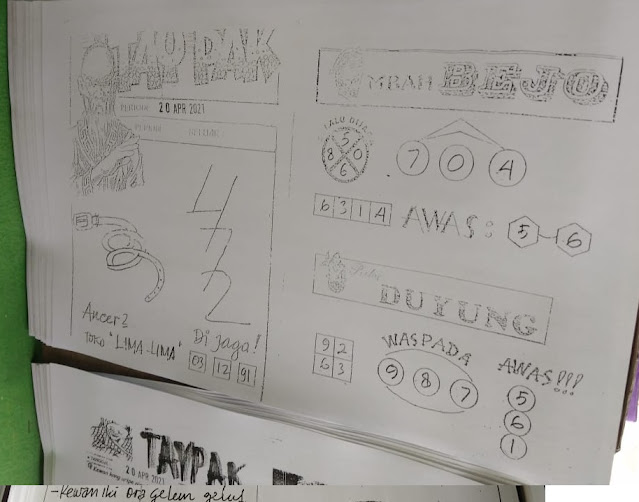 TAYPAK
PERIODE 20 APR 2021
4
7
2
Ancer2
TOKO "LIMA-LIMA"
Di jaga!
03 12 91
MBAH BEJO
5
8 0
6
7 0 4
6 3 1 4 AWAS: 5-6
DUYUNG
9 2
6 3
WASPADA
9 8 7
AWAS!!!
5
6
1
TAYPAK
20 APR 2021
-Kewan iki ora gelem gelut